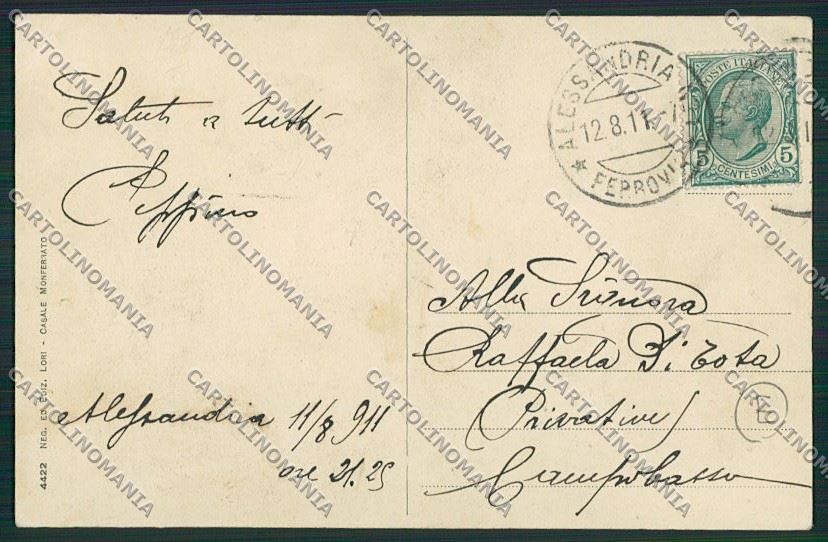 Saluti a tutti
Peppino
Alessandria 11/8 911
ore 21.25
4422 NEG. ED EDIZ. LORI - CASALE MONFERRATO
ALESSANDRIA
12.8.11
FERROVIA
POSTE ITALIANE
5 5
CENTESIMI
Alla Signora
Raffaela Di Tota
(Privative)
Campobasso
CARTOLINOMANIA